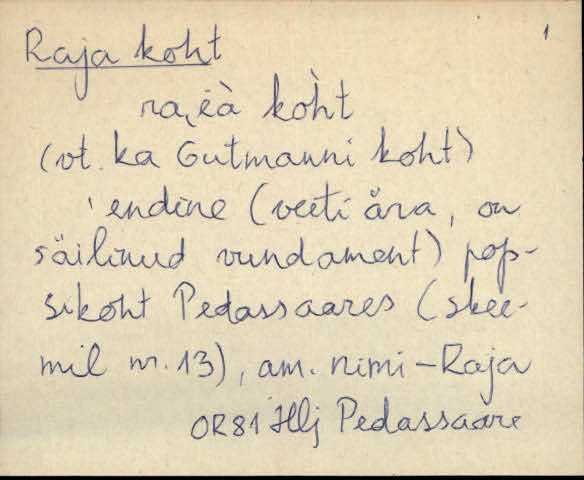 Raja koht 1
ra,èà koht
(vt. ka Gutmanni koht)
endine (veeti ära, on
säilinud vundament) pop-
sikoht Pedassaares (skee-
mil nr. 13), am. nimi - Raja
OR81 Hlj Pedassaare